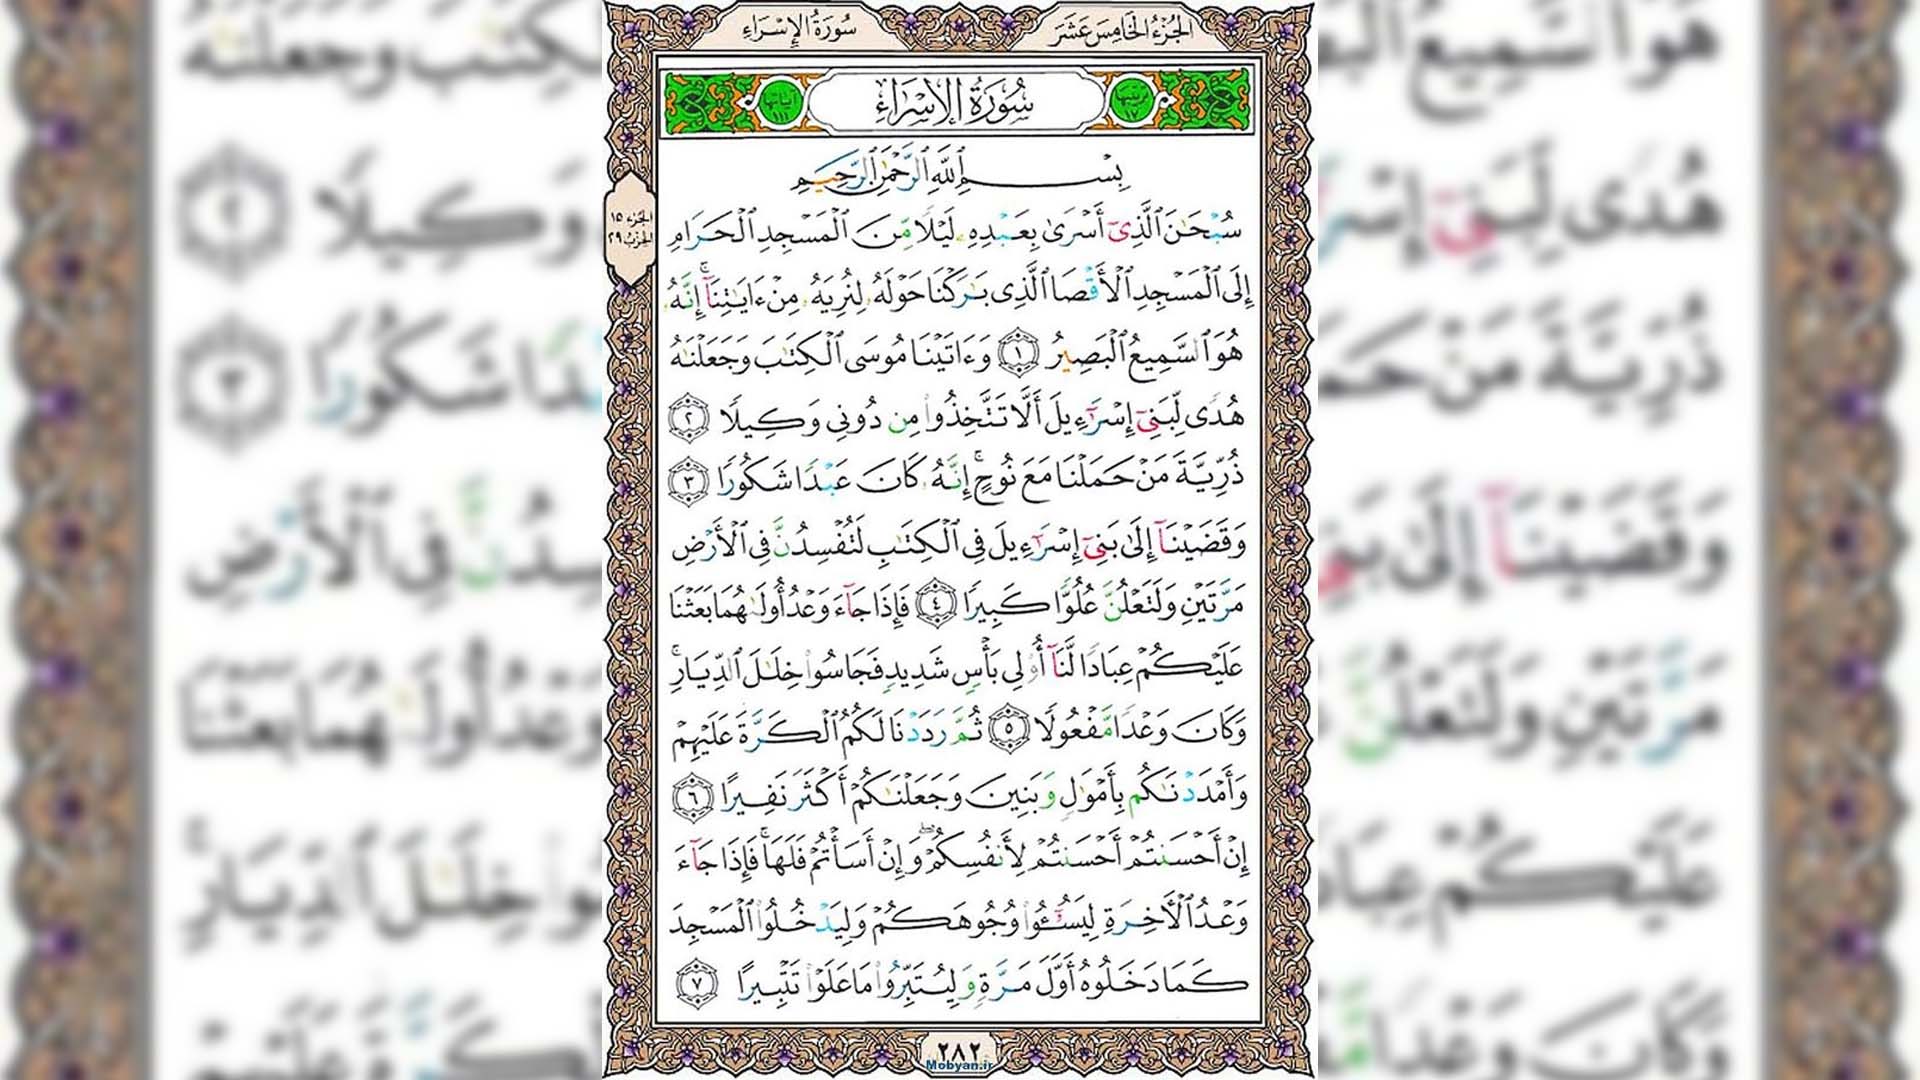 الجُزْءُ الخَامِسَ عَشَرَ
سُورَةُ الإِسْرَاءِ
ترتيبها ١٧
سُورَةُ الإِسْرَاءِ
آياتها ١١١
الجزء ١٥
الحزب ٢٩
بِسْمِ ٱللَّهِ ٱلرَّحْمَٰنِ ٱلرَّحِيمِ
سُبْحَٰنَ ٱلَّذِىٓ أَسْرَىٰ بِعَبْدِهِۦ لَيْلًا مِّنَ ٱلْمَسْجِدِ ٱلْحَرَامِ
إِلَى ٱلْمَسْجِدِ ٱلْأَقْصَا ٱلَّذِى بَٰرَكْنَا حَوْلَهُۥ لِنُرِيَهُۥ مِنْ ءَايَٰتِنَآ ۚ إِنَّهُۥ
هُوَ ٱلسَّمِيعُ ٱلْبَصِيرُ ١ وَءَاتَيْنَا مُوسَى ٱلْكِتَٰبَ وَجَعَلْنَٰهُ
هُدًى لِّبَنِىٓ إِسْرَٰٓءِيلَ أَلَّا تَتَّخِذُوا۟ مِن دُونِى وَكِيلًا ٢
ذُرِّيَّةَ مَنْ حَمَلْنَا مَعَ نُوحٍ ۚ إِنَّهُۥ كَانَ عَبْدًا شَكُورًا ٣
وَقَضَيْنَآ إِلَىٰ بَنِىٓ إِسْرَٰٓءِيلَ فِى ٱلْكِتَٰبِ لَتُفْسِدُنَّ فِى ٱلْأَرْضِ
مَرَّتَيْنِ وَلَتَعْلُنَّ عُلُوًّا كَبِيرًا ٤ فَإِذَا جَآءَ وَعْدُ أُولَىٰهُمَا بَعَثْنَا
عَلَيْكُمْ عِبَادًا لَّنَآ أُو۟لِى بَأْسٍ شَدِيدٍ فَجَاسُوا۟ خِلَٰلَ ٱلدِّيَارِ ۚ
وَكَانَ وَعْدًا مَّفْعُولًا ٥ ثُمَّ رَدَدْنَا لَكُمُ ٱلْكَرَّةَ عَلَيْهِمْ
وَأَمْدَدْنَٰكُم بِأَمْوَٰلٍ وَبَنِينَ وَجَعَلْنَٰكُمْ أَكْثَرَ نَفِيرًا ٦
إِنْ أَحْسَنتُمْ أَحْسَنتُمْ لِأَنفُسِكُمْ ۖ وَإِنْ أَسَأْتُمْ فَلَهَا ۚ فَإِذَا جَآءَ
وَعْدُ ٱلْءَاخِرَةِ لِيَسُۥٓـُٔوا۟ وُجُوهَكُمْ وَلِيَدْخُلُوا۟ ٱلْمَسْجِدَ
كَمَا دَخَلُوهُ أَوَّلَ مَرَّةٍ وَلِيُتَبِّرُوا۟ مَا عَلَوْا۟ تَتْبِيرًا ٧
٢٨٢
Mobyan.ir